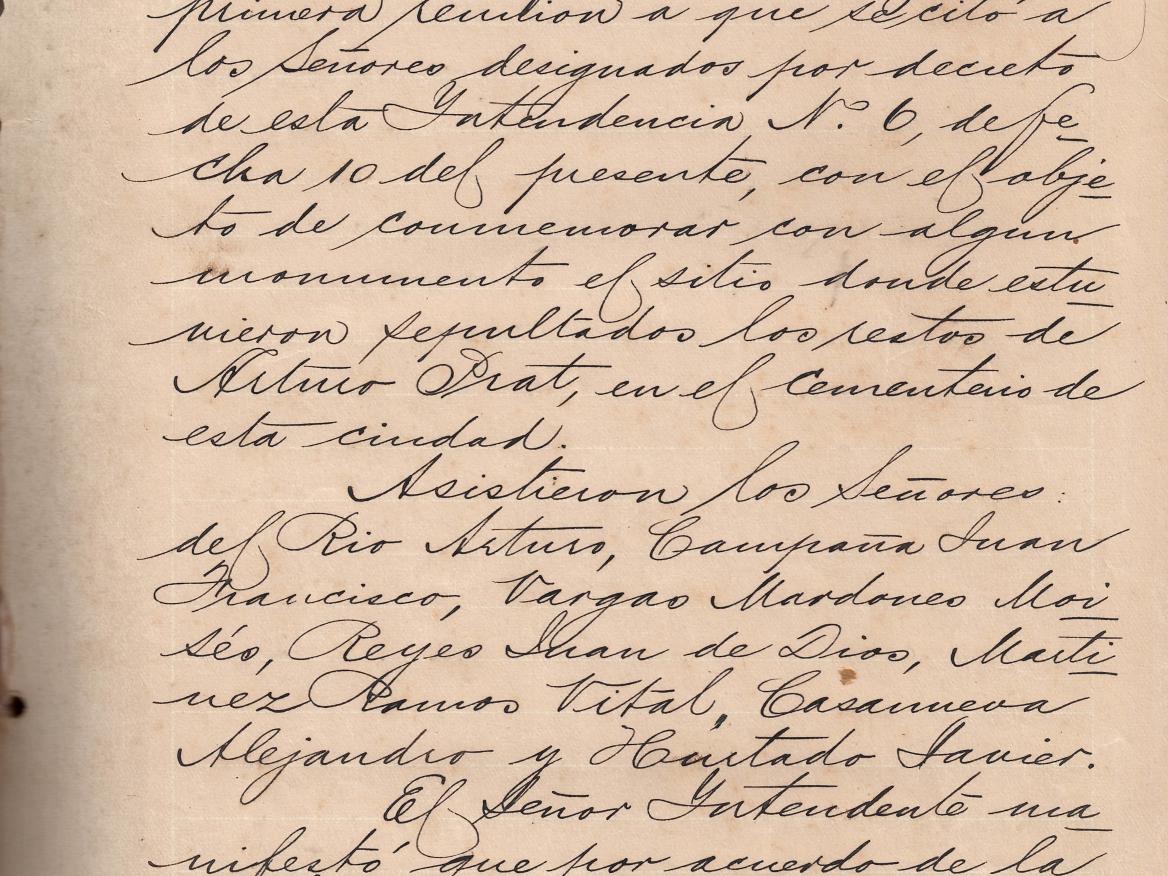 primera reunion a que se citó a
los Señores designados por decreto
de esta Intendencia, N.º 6, de fe
cha 10 del presente, con el obje
to de conmemorar con algun
monumento el sitio donde estu
vieron sepultados los restos de
Arturo Prat, en el cementerio de
esta ciudad.
Asistieron los Señores:
del Rio Arturo, Campaña Juan
Francisco, Vargas Mardones Moi
sés, Reyes Juan de Dios, Marti
nez Ramos Vital, Casanueva
Alejandro y Hurtado Javier.
El Señor Intendente ma
nifestó que por acuerdo de la